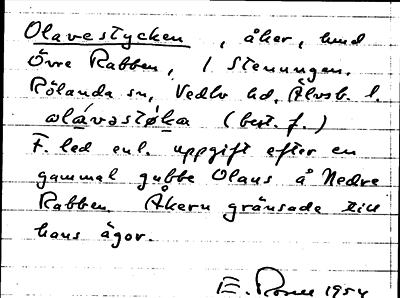 Olavestycken, åker, hmd
Övre Rabben, i Stenungen.
Rölanda sn, Vedbo hd, Älvsb. l.
ɯlávəstøka (best. f.)
F. led enl. uppgift efter en
gammal gubbe Olaus å Nedre
Rabben. Åkern gränsade till
hans ägor.
1954